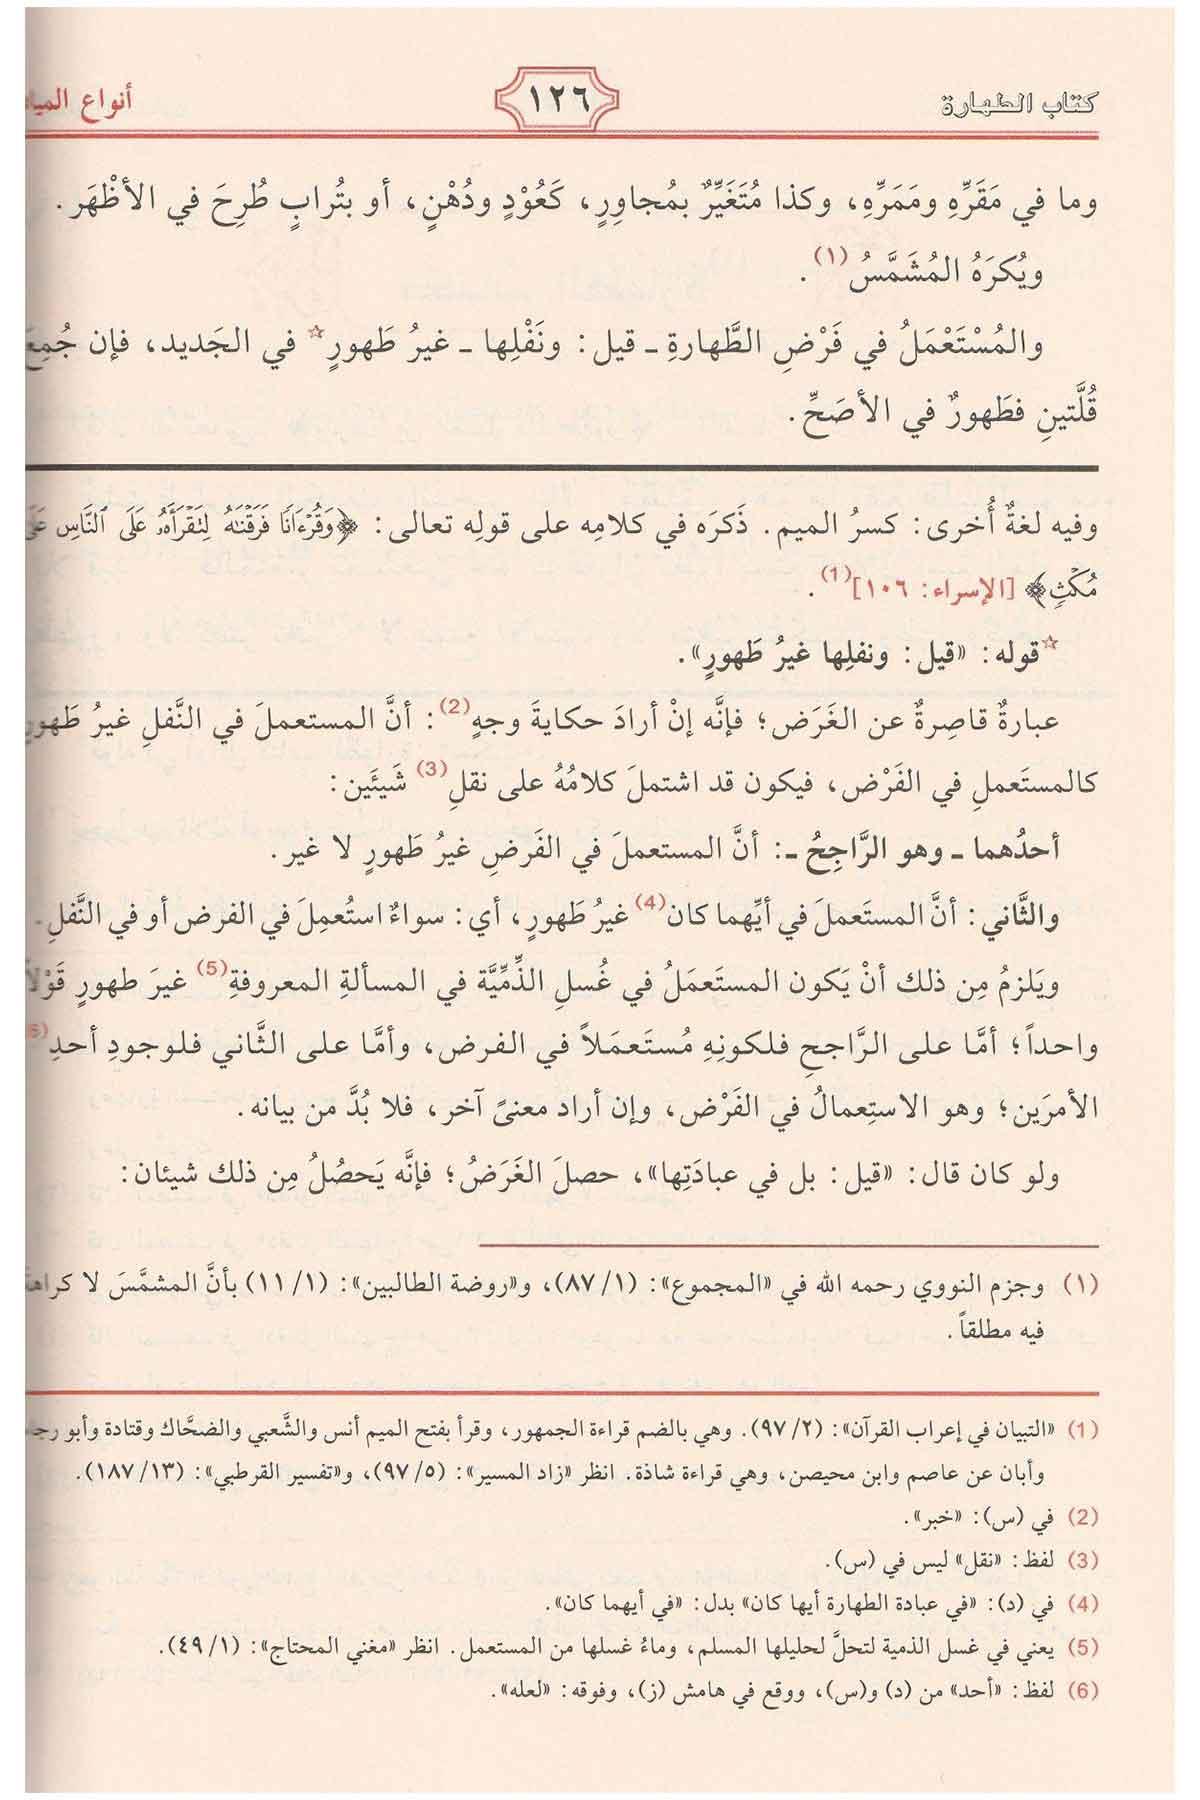 كتاب الطهارة
١٢٦
أنواع المياه
وما في مَقَرِّه ومَمَرِّه، وكذا مُتَغَيِّرٌ بمُجاوِرٍ، كَعُوْدٍ ودُهْنٍ، أو بتُرابٍ طُرِحَ في الأظْهَر.
ويُكرَهُ المُشَمَّسُ (١).
والمُسْتَعْمَلُ في فَرْضِ الطَّهارةِ ـ قيل: ونَفْلِها ـ غيرُ طَهورٍ☆ في الجَديد، فإن جُمِعَ
قُلَّتينِ فطَهورٌ في الأصَحِّ.
وفيه لغةٌ أُخرى: كسرُ الميم. ذَكرَه في كلامِه على قولِه تعالى: ﴿وَقُرْءَانًا فَرَقْنَٰهُ لِتَقْرَأَهُۥ عَلَى ٱلنَّاسِ عَلَىٰ
مُكْثٍ﴾ [الإسراء: ١٠٦](1).
☆قوله: «قيل: ونفلِها غيرُ طَهورٍ».
عبارةٌ قاصِرةٌ عن الغَرَض؛ فإنَّه إنْ أرادَ حكايةَ وجهٍ(2): أنَّ المستعملَ في النَّفلِ غيرُ طَهورٍ
كالمستَعملِ في الفَرْض، فيكون قد اشتملَ كلامُهُ على نقلِ(3) شَيئَين:
أحدُهما ـ وهو الرَّاجِحُ ـ: أنَّ المستعملَ في الفَرضِ غيرُ طَهورٍ لا غير.
والثَّاني: أنَّ المستَعملَ في أيِّهما كان(4) غيرُ طَهورٍ، أي: سواءٌ استُعمِلَ في الفرض أو في النَّفلِ.
ويَلزمُ مِن ذلك أنْ يَكون المستَعمَلُ في غُسلِ الذِّمِّيَّة في المسألةِ المعروفةِ(5) غيرَ طهورٍ قَوْلاً
واحداً؛ أمَّا على الرَّاجحِ فلكونِهِ مُستَعمَلاً في الفرض، وأمَّا على الثَّاني فلوجودِ أحدِ(6)
الأمرَين؛ وهو الاستِعمالُ في الفَرْض، وإن أراد معنىً آخر، فلا بُدَّ من بيانه.
ولو كان قال: «قيل: بل في عبادَتِها»، حصلَ الغَرَضُ؛ فإنَّه يَحصُلُ مِن ذلك شيئان:
(١) وجزم النووي رحمه الله في «المجموع»: (١/ ٨٧)، و«روضة الطالبين»: (١/ ١١) بأنَّ المشمَّسَ لا كراهة
فيه مطلقاً.
(1) «التبيان في إعراب القرآن»: (٢/ ٩٧). وهي بالضم قراءة الجمهور، وقرأ بفتح الميم أنس والشَّعبي والضحَّاك وقتادة وأبو رجاء
وأبان عن عاصم وابن محيصن، وهي قراءة شاذة. انظر «زاد المسير»: (٥/ ٩٧)، و«تفسير القرطبي»: (١٣/ ١٨٧).
(2) في (س): «خبر».
(3) لفظ: «نقل» ليس في (س).
(4) في (د): «في عبادة الطهارة أيها كان» بدل: «في أيهما كان».
(5) يعني في غسل الذمية لتحلَّ لحليلها المسلم، وماءُ غسلها من المستعمل. انظر «مغني المحتاج»: (١/ ٤٩).
(6) لفظ: «أحد» من (د) و(س)، ووقع في هامش (ز)، وفوقه: «لعله».